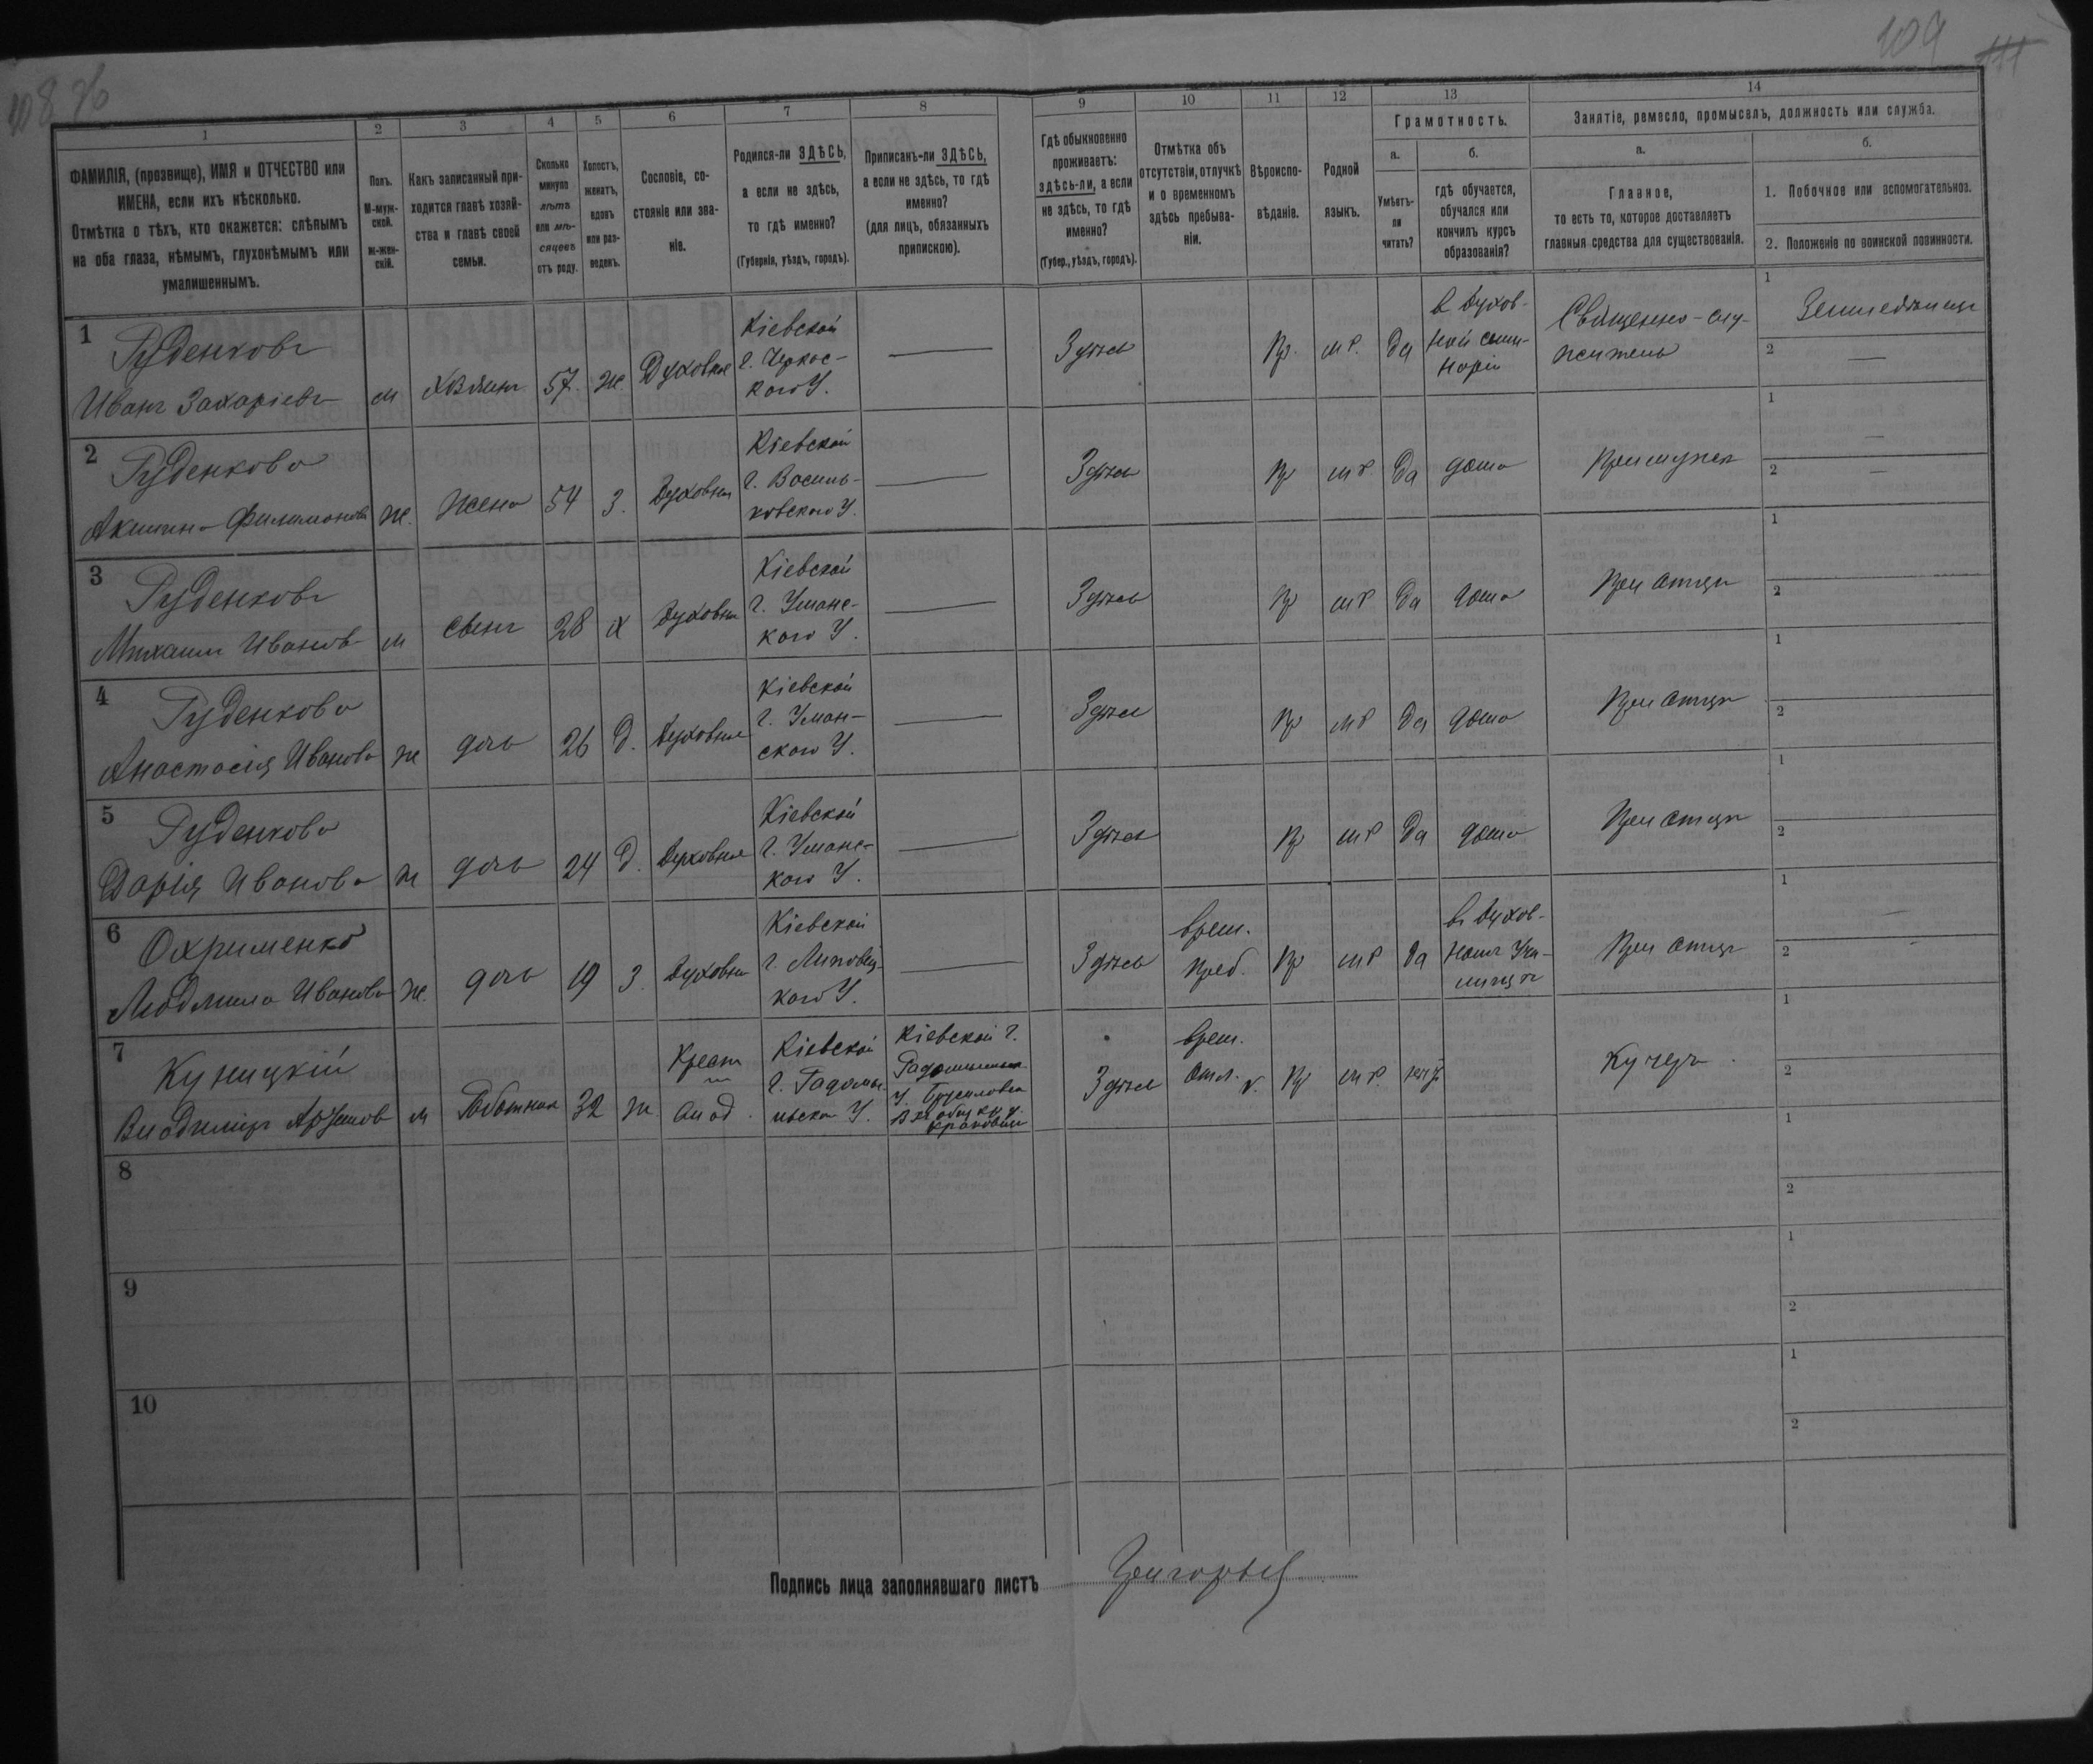 108 об
109
111
1
2
3
4
5
6
7
8
9
10
11
12
13
14
ФАМИЛІЯ, (прозвище), ИМЯ и ОТЧЕСТВО или
ИМЕНА, если ихъ нѣсколько.
Отмѣтка о тѣхъ, кто окажется: слѣпымъ
на оба глаза, нѣмымъ, глухонѣмымъ или
умалишеннымъ.
Полъ.
М-муж-
ской.
ж-жен-
скій.
Какъ записанный при-
ходится главѣ хозяй-
ства и главѣ своей
семьи.
Сколько
минуло
лѣтъ
или мѣ-
сяцевъ
отъ роду.
Холостъ,
женатъ,
вдовъ
или раз-
веденъ.
Сословіе, со-
стояніе или зва-
ніе.
Родился-ли ЗДѢСЬ,
а если не здѣсь,
то гдѣ именно?
(Губернія, уѣздъ, городъ).
Приписанъ-ли ЗДѢСЬ,
а если не здѣсь, то гдѣ
именно?
(для лицъ, обязанныхъ
припискою).
Гдѣ обыкновенно
проживаетъ:
здѣсь-ли, а если
не здѣсь, то гдѣ
именно?
(Губер., уѣздъ, городъ).
Отмѣтка объ
отсутствіи, отлучкѣ
и о временномъ
здѣсь пребыва-
ніи.
Вѣроиспо-
вѣданіе.
Родной
языкъ.
Грамотность.
а.
Умѣетъ-
ли
читать?
б.
гдѣ обучается,
обучался или
кончилъ курсъ
образованія?
Занятіе, ремесло, промыселъ, должность или служба.
а.
Главное,
то есть то, которое доставляетъ
главныя средства для существованія.
б.
1. Побочное или вспомогательное.
2. Положеніе по воинской повинности.
1
Руденковъ
Иванъ Захаріевъ
м
хозяинъ
57.
ж.
Духовное
Кіевской
г. Черкас-
каго У.
Здѣсь
Пр.
мр.
да
въ духов-
ной семи-
наріи
Священно-слу-
житель
1
Земледѣлецъ
2
2
Руденкова
Акилина Филимонова
ж.
жена
54
з.
Духовная
Кіевской
г. Василь-
ковскаго У.
Здѣсь
Пр
мр
да
дома
При мужѣ
1
2
3
Руденковъ
Михаилъ Ивановъ
м
сынъ
28
х
Духовн
Кіевской
г. Уманс-
каго У.
Здѣсь
Пр
мр
да
дома
При отцѣ
1
2
4
Руденкова
Анастасія Иванова
ж
дочь
26
д.
Духовная
Кіевской
г. Уман-
скаго У.
Здѣсь
Пр
мр
да
дома
При отцѣ
1
2
5
Руденкова
Дарія Иванова
ж
дочь
24
д.
Духовная
Кіевской
г. Уманс-
каго У.
Здѣсь
Пр
мр
да
дома
При отцѣ
1
2
6
Охрименко
Людмила Иванова
ж.
дочь
19
з.
Духовн
Кіевской
г. Липовец-
каго У.
Здѣсь
врем.
преб.
Пр
мр
да
въ духов-
номъ Учи-
лищѣ
При отцѣ
1
2
7
Куницкій
Владиміръ
м
Работникъ
32
ж.
Крест
Кіевской
г. Радомы-
Кіевской г.
Здѣсь
врем.
отл.
Пр
мр.
нѣт
Кучеръ
1
2
8
1
2
9
1
2
10
1
2
Подпись лица заполнявшаго листъ